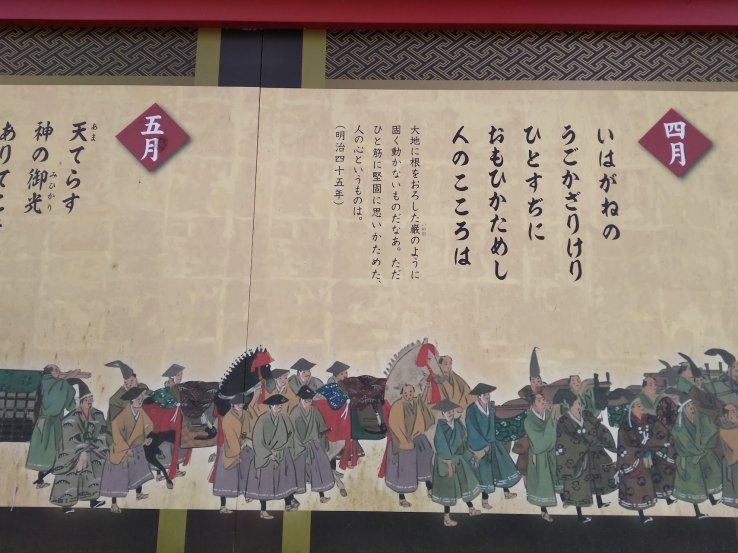 四月
いはがねの
うごかざりけり
ひとすぢに
おもひかためし
人のこころは
大地に根をおろした巌のように
固く動かないものだなあ。ただ
ひと筋に堅固に思いかためた、
人の心というものは。
(明治四十五年)
五月
天てらす
神の御光
ありてこそ